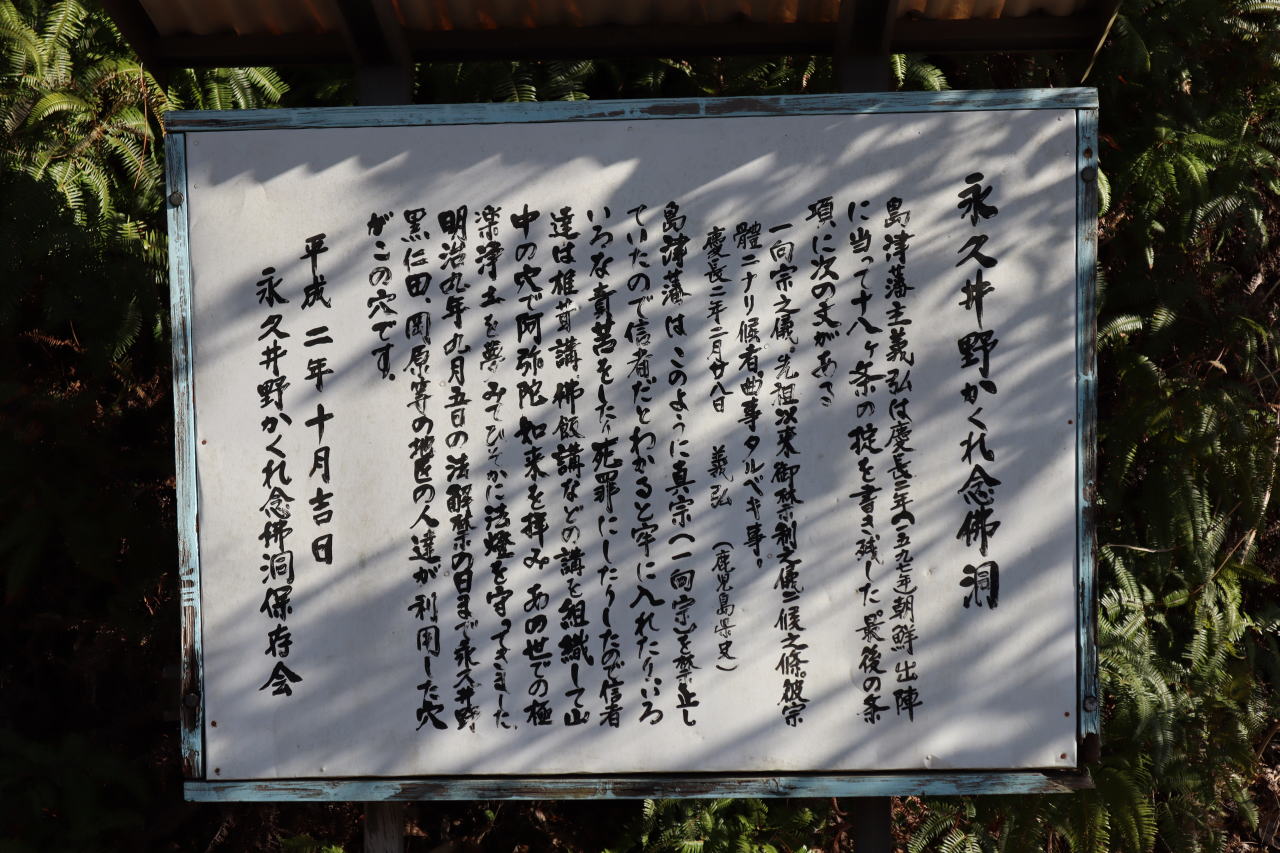 永久井野かくれ念佛洞
島津藩主義弘は慶長二年(一五九七年)朝鮮出陣
に当って十八ヶ条の掟を書き残した。最後の条
項に次の文があります
一向宗之儀先祖以来御禁制之儀ニ候之條彼宗
體ニナリ候者曲事タルベキ事。
慶長二年二月廿八日 義弘 (鹿児島県史)
島津藩はこのように真宗(一向宗)を禁止し
ていたので信者だとわかると牢に入れたりいろ
いろな責苦をしたり死罪にしたりしたので信者
達は椎茸講、佛飯講などの講を組織して山
中の穴で阿弥陀如来を拝み あの世での極
楽浄土を夢みてひそかに法燈を守ってきました
明治九年九月五日の法解禁の日まで永久井野
黒仁田、岡原等の地区の人達が利用した穴
がこの穴です。
平成二年十月吉日
永久井野かくれ念佛洞保存会